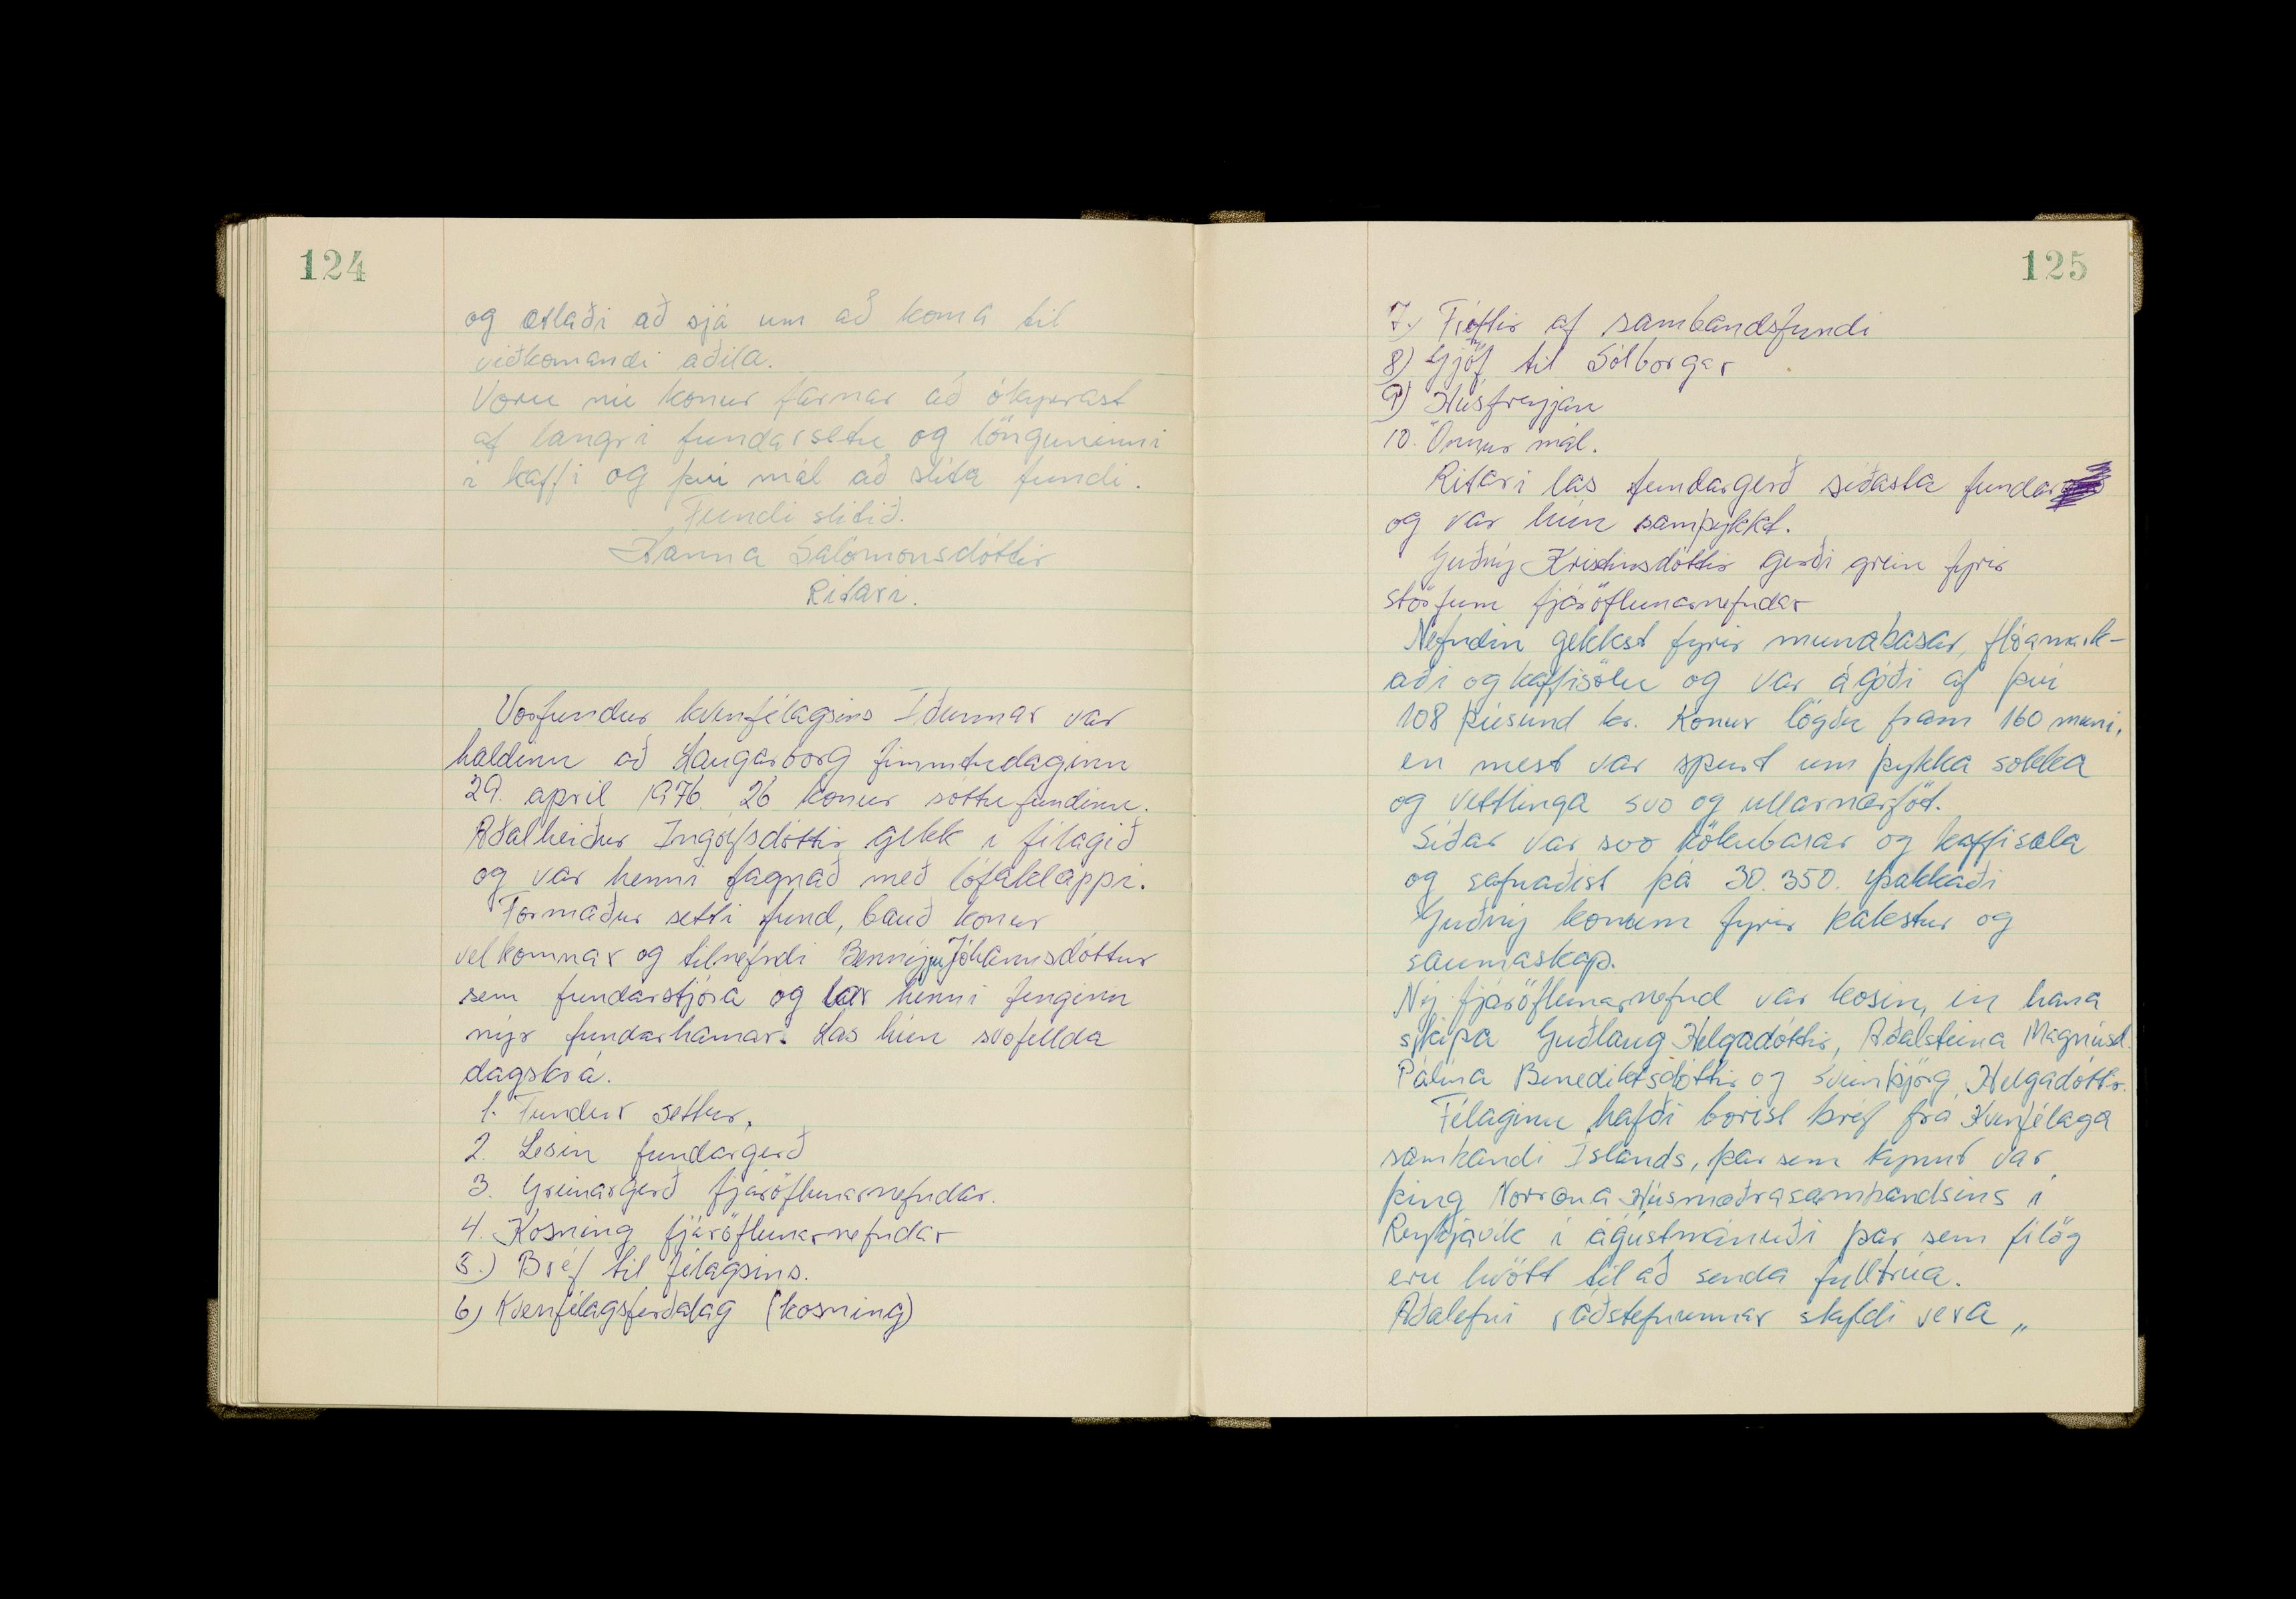 124
og ætlaði að sjá um að koma til
viðkomandi aðila.
Voru nú konur farnar að ókyrrast
af langri fundarsetu og lönguninni
í kaffi og því mál að slíta fundi.
Fundi slitið.
Hanna Salómonsdóttir
Ritari.
Vorfundur kvenfélagsins Iðunnar var
haldinn að Laugarborg fimmtudaginn
29. april 1976. 26 konur sóttu fundinn.
Aðalheiður Ingólfsdóttir gekk í félagið
og var henni fagnað með lófaklappi.
Formaður setti fund, bauð konur
velkomnar og tilnefndi Benníju Jóhannsdóttur
sem fundarstjóra og var henni fenginn
nýr fundarhamar. Las hún svofellda
dagskrá.
1. Fundur settur.
2. Lesin fundargerð
3. Greinargerð fjáröflunarnefndar.
4. Kosning fjáröflunarnefndar
5.) Bréf til félagsins.
6) Kvenfélagsferðalag (kosning)
125
7.) Fréttir af sambandsfundi
8) Gjöf til Sólborgar
9) Húsfreyjan
10. Önnur mál.
Ritari las fundargerð síðasta fundar
og var hún samþykkt.
Guðný Kristinsdóttir gerði grein fyrir
störfum fjáröflunarnefndar
Nefndin gekkst fyrir munabasar, flóamark-
aði og kaffisölu og var ágóði af því
108 þúsund kr. Konur lögðu fram 160 muni,
en mest var spurt um þykka sokka
og vettlinga svo og ullarnærföt.
Síðar var svo kökubasar og kaffisala
og safnaðist þá 30.350. Þakkaði
Guðný konum fyrir bakstur og
saumaskap.
Ný fjáröflunarnefnd var kosin, en hana
skipa Guðlaug Helgadóttir, Aðalsteina Magnúsd.
Pálína Benediktsdóttir og Sveinbjörg Helgadóttir.
Félaginu hafði borist bréf frá Kvenfélaga
sambandi Íslands, þar sem kynnt var
þing Norræna Húsmæðrasambandsins í
Reykjavík í ágústmánuði þar sem félög
eru hvött til að senda fulltrúa.
Aðalefni ráðstefnunnar skyldi vera „